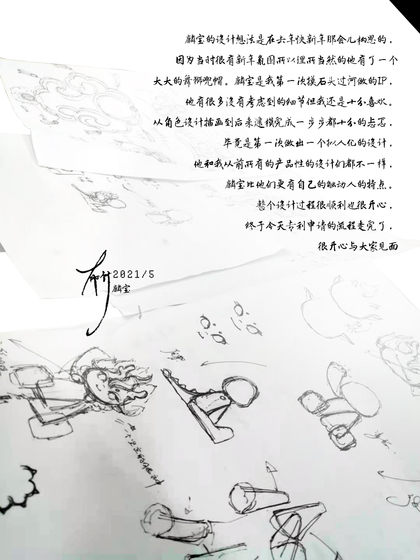 麟宝的设计想法是在去年快新年那会儿构思的，
因为当时很有新年氛围所以理所当然的他有了一个
大大的舞狮兜帽。麟宝是我第一次摸石头过河做的IP，
他有很多没有考虑到的细节但我还是十分喜欢。
从角色设计插画到后来建模完成一步步都十分的忐忑，
毕竟是第一次做出一个拟人化的设计，
他和我以前所有的产品性的设计们都不一样，
麟宝比他们更有自己的触动人的特点。
整个设计过程很顺利也很开心，
终于今天专利申请的流程走完了，
很开心与大家见面
2021/5
麟宝